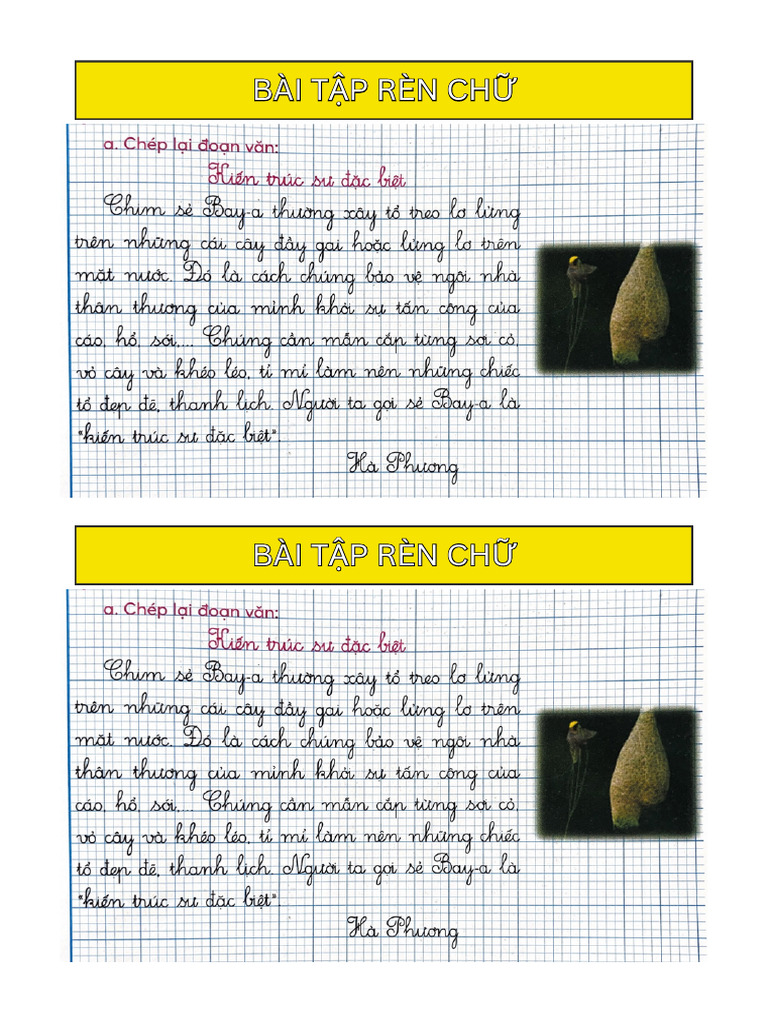 BÀI TẬP RÈN CHỮ
a. Chép lại đoạn văn:
Kiến trúc sư đặc biệt
Chim sẻ Bay-a thường xây tổ treo lơ lửng
trên những cái cây đầy gai hoặc lửng lơ trên
mặt nước. Đó là cách chúng bảo vệ ngôi nhà
thân thương của mình khỏi sự tấn công của
cáo, hổ, sói,... Chúng cần mẫn cắp từng sợi cỏ,
vỏ cây và khéo léo, tỉ mỉ làm nên những chiếc
tổ đẹp đẽ, thanh lịch. Người ta gọi sẻ Bay-a là
"kiến trúc sư đặc biệt".
Hà Phương
BÀI TẬP RÈN CHỮ
a. Chép lại đoạn văn:
Kiến trúc sư đặc biệt
Chim sẻ Bay-a thường xây tổ treo lơ lửng
trên những cái cây đầy gai hoặc lửng lơ trên
mặt nước. Đó là cách chúng bảo vệ ngôi nhà
thân thương của mình khỏi sự tấn công của
cáo, hổ, sói,... Chúng cần mẫn cắp từng sợi cỏ,
vỏ cây và khéo léo, tỉ mỉ làm nên những chiếc
tổ đẹp đẽ, thanh lịch. Người ta gọi sẻ Bay-a là
"kiến trúc sư đặc biệt".
Hà Phương